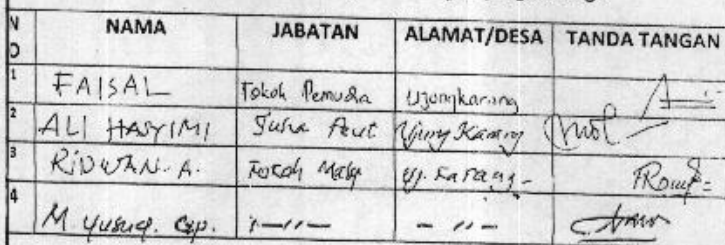 NO NAMA JABATAN ALAMAT/DESA TANDA TANGAN
1 FAISAL Tokoh Pemuda Ujongkarang
2 ALI HASYIMI Ujung Karang
3 RIDWAN. A. Tokoh Uj. Karang -
4 M. Yusuf. Cap. - 〃 - - 〃 -